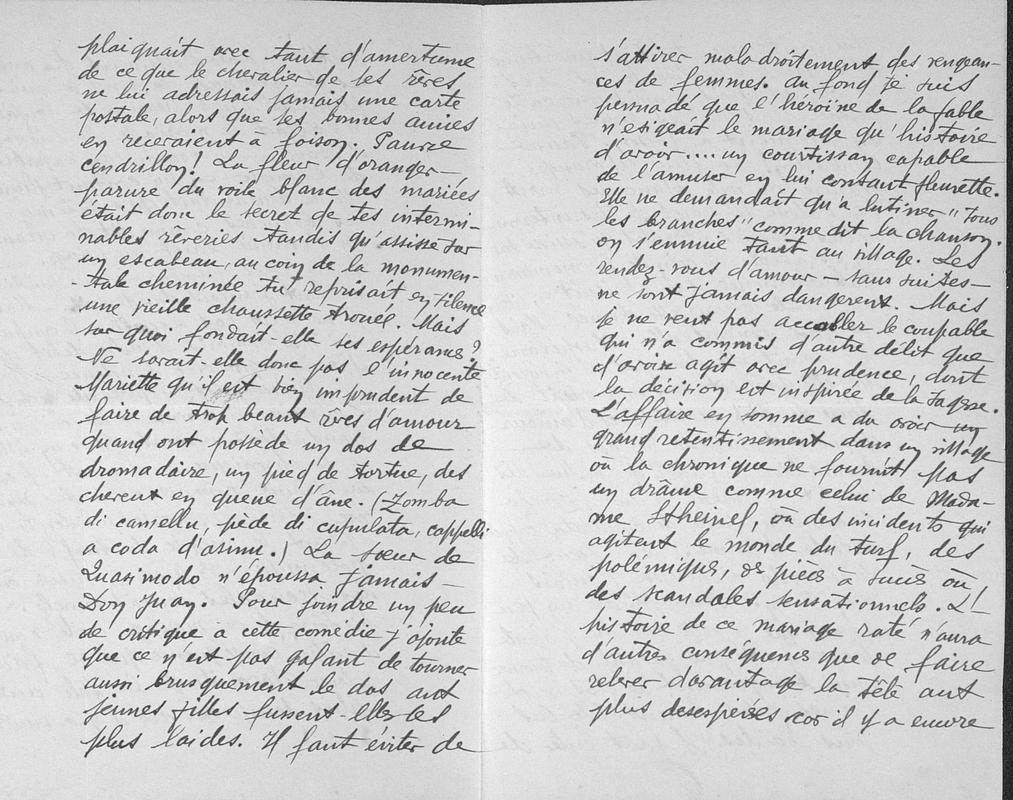 plaignait avec tant d'amertume
de ce que le chevalier de ses rêves
ne lui adressais jamais une carte
postale, alors que ses bonnes amies
en recevraient à foison. Pauvre
cendrillon! La fleur d'oranger
parure du voile blanc des mariées
était donc le secret de tes intermi-
nables rêveries tandis qu'assise sur
un escabeau, au coin de la monumen-
-tale cheminée tu reprisait en silence
une vieille chaussette trouée. Mais
sur quoi fondait-elle ses espérances?
Ne savait elle donc pas l'innocente
Mariette qu'il est bien imprudent de
faire de trop beaux rêves d'amour
quand ont possède un dos de
dromadaire, un pied de tortue, des
cheveux en queue d'âne. (Zomba
di camellu, pède di cupulata, cappelli
a coda d'asinu.) La sœur de
Quasimodo n'épousa jamais
Don Juan. Pour joindre un peu
de critique à cette comédie j'ajoute
que ce n'est pas galant de tourner
aussi brusquement le dos aux
jeunes filles fussent-elles les
plus laides. Il faut éviter de
s'attirer maladroitement des vengean-
ces de femmes. Au fond je suis
persuadé que l'héroïne de la fable
n'exigeait le mariage qu'histoire
d'avoir .... un courtisan capable
de l'amuser en lui contant fleurette.
Elle ne demandait qu'à lutiner "sous
les branches" comme dit la chanson.
on s'ennuie tant au village. Les
rendez-vous d'amour – sans suites –
ne sont jamais dangereux. Mais
je ne veux pas accabler le coupable
qui n'a commis d'autre délit que
d'avoir agit avec prudence, dont
la décision est inspirée de la sagesse.
L'affaire en somme a du avoir un
grand retentissement dans un village
où la chronique ne fournit pas
un drâme comme celui de Mada-
me Stheinel, où des incidents qui
agitent le monde du turf, des
polémiques, des pièces à succès ou
des scandales sensationnels. L'
histoire de ce mariage raté n'aura
d'autres conséquences que de faire
relever davantage la tête aux
plus desesperées car il y a encore